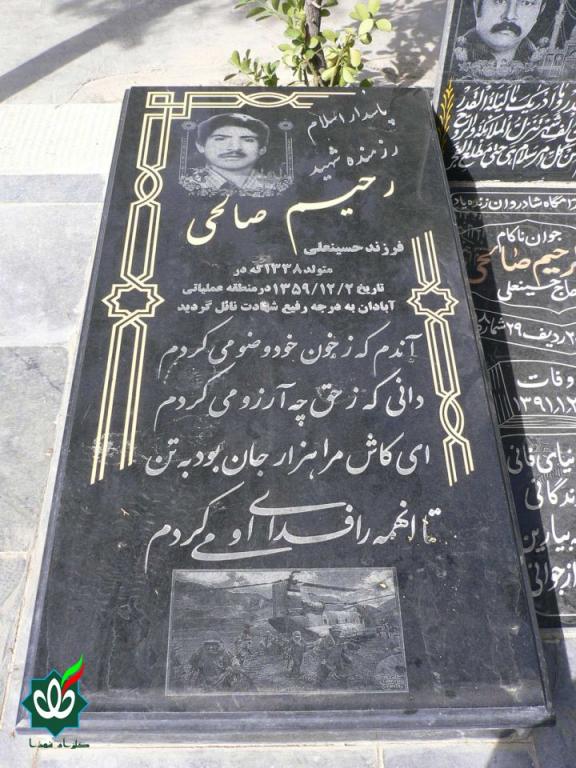 پاسدار اسلام
رزمنده شهید
رحیم صالحی
فرزند حسینعلی
متولد ۱۳۳۸ که در
تاریخ ۱۳۵۹/۱۲/۲ در منطقه عملیاتی
آبادان به درجه رفیع شهادت نائل گردید
آندم که ز خون خود وضو می کردم
دانی که ز حق چه آرزو می کردم
ای کاش مرا هزار جان بود به تن
تا آنهمه را فدای او می کردم
آرامگاه شادروان زنده یاد
جوان ناکام
رحیم صالحی
حاج حسینعلی
ردیف ۲۹ شماره
وفات
دنیای فانی
زندگانی